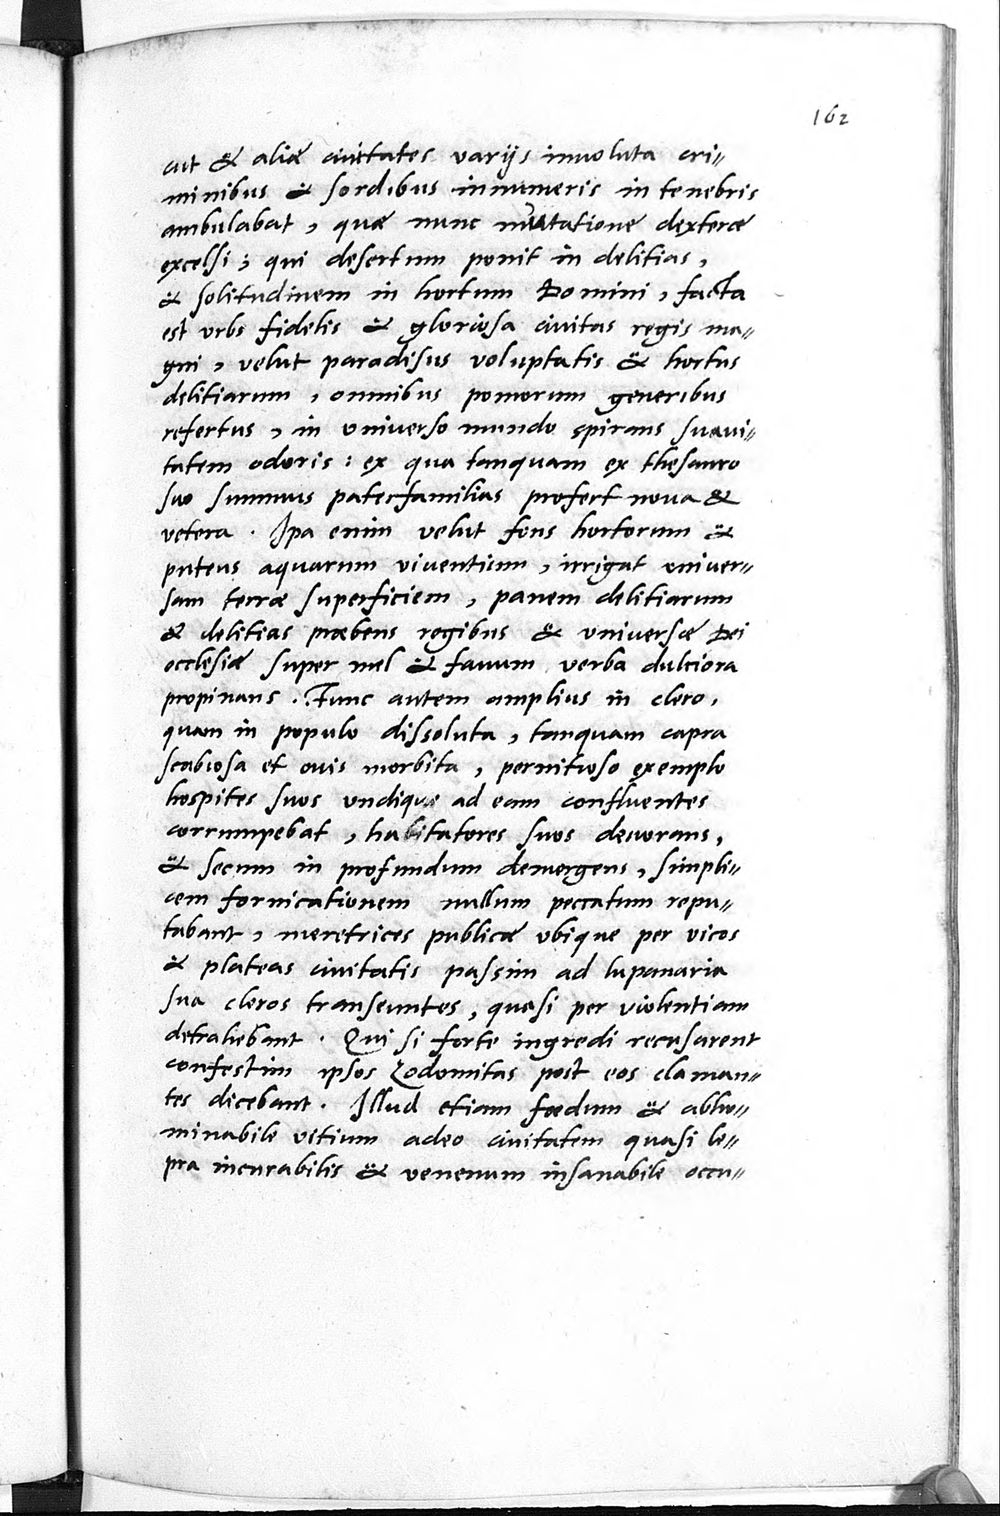 162
cut & aliæ ciuitates varijs inuoluta cri„
minibus & sordibus innumeris in tenebris
ambulabat, quæ nunc mutatione dexteræ
excelsi; qui desertum ponit in delitias,
& solitudinem in hortum Domini, facta
est vrbs fidelis & gloriosa ciuitas regis ma„
gni, velut paradisus voluptatis & hortus
delitiarum, omnibus pomorum generibus
refertus, in vniverso mundo spirans suaui„
tatem odoris: ex qua tanquam ex thesauro
suo summus paterfamilias profert noua &
vetera. Ipa enim velut fons hortorum &
puteus aquarum viventium, irrigat vniver„
sam terræ superficiem, panem delitiarum
& delitias præbens regibus & universæ Dei
ecclesiæ super mel & fauum verba dulciora
propinans. Tunc autem amplius in clero,
quam in populo dissoluta, tanquam capra
scabiosa et ouis morbita, pernitioso exemplo
hospites suos vndique ad eam confluentes
corrumpebat, habitatores suos deuorans,
& secum in profundum demergens, simpli„
cem fornicationem nullum peccatum repu„
tabant, meretrices publicæ vbique per vicos
& plateas ciuitatis passim ad lupanaria
sua cleros transeuntes, quasi per violentiam
detrahebant. Qui si forte ingredi recusarent
confestim ipsos Zodomitas post eos claman„
tes dicebant. Illud etiam fœdum & abho„
minabile vitium adeo ciuitatem quasi le„
pra incurabilis & venenum insanabile occu„